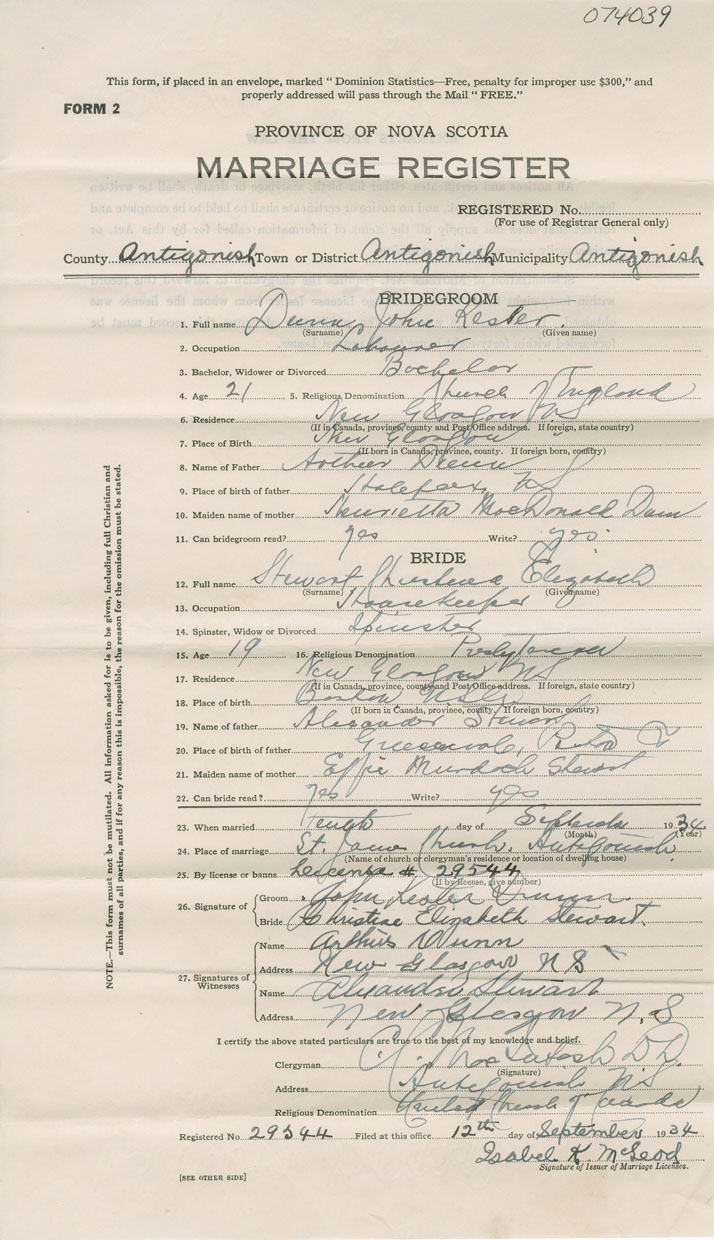 074039
This form, if placed in an envelope, marked " Dominion Statistics—Free, penalty for improper use $300," and
properly addressed will pass through the Mail " FREE."
FORM 2
PROVINCE OF NOVA SCOTIA
MARRIAGE REGISTER
REGISTERED No.
(For use of Registrar General only)
County Antigonish Town or District Antigonish Municipality Antigonish
BRIDEGROOM
1. Full name Dunn, John Kester.
(Surname) (Given name)
2. Occupation Labourer
3. Bachelor, Widower or Divorced Bachelor
4. Age 21 5. Religious Denomination Church of England
6. Residence New Glasgow NS
(If in Canada, province, county and Post Office address. If foreign, state country)
7. Place of Birth New Glasgow "
(If born in Canada, province, county. If foreign born, country)
8. Name of Father Arthur Dunn
9. Place of birth of father Halifax, NS
10. Maiden name of mother Henrietta MacDonald Dunn
11. Can bridegroom read? yes Write? yes
BRIDE
12. Full name Stewart Christena Elizabeth
(Surname) (Given name)
13. Occupation Housekeeper
14. Spinster, Widow or Divorced Spinster
15. Age 19 16. Religious Denomination Presbyterian
17. Residence New Glasgow NS
(If in Canada, province, county and Post Office address. If foreign, state country)
18. Place of birth Boston
(If born in Canada, province, county. If foreign born, country)
19. Name of father Alexander Stewart
20. Place of birth of father
21. Maiden name of mother Effie Murdoch Stewart
22. Can bride read? yes Write? yes
23. When married Tenth day of September 1934
(Month) (Year)
24. Place of marriage St. James Church, Antigonish
(Name of church or clergyman's residence or location of dwelling house)
25. By license or banns License # 29544
(If by license, give number)
26. Signature of Groom John Kester Dunn.
Bride Christine Elizabeth Stewart.
27. Signatures of Witnesses
Name Arthur Dunn
Address New Glasgow N S
Name Alexander Stewart
Address New Glasgow N.S
I certify the above stated particulars are true to the best of my knowledge and belief.
Clergyman MacIntosh
(Signature)
Address Antigonish NS
Religious Denomination United Church of Canada
Registered No. 29544 Filed at this office 12th day of September 1934
Isabel K. McLeod
Signature of Issuer of Marriage Licenses.
[SEE OTHER SIDE]
NOTE.—This form must not be mutilated. All information asked for is to be given, including full Christian and
surnames of all parties, and if for any reason this is impossible, the reason for the omission must be stated.